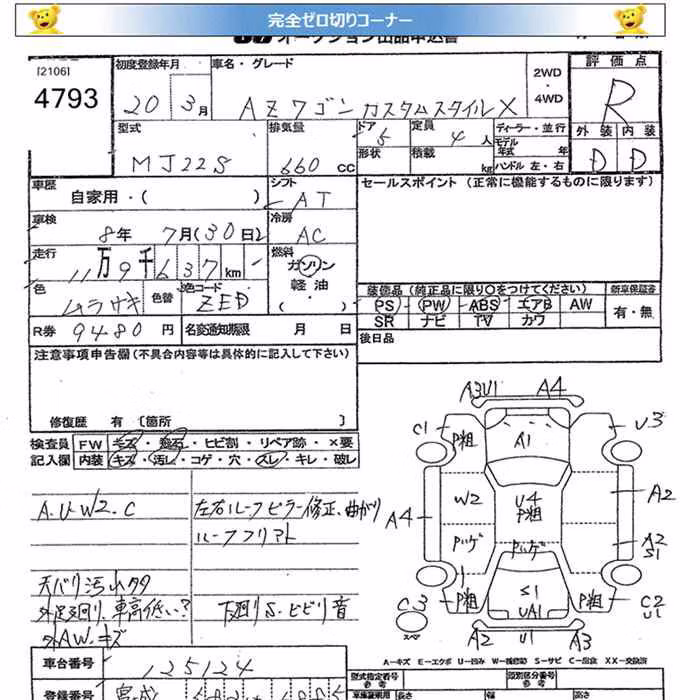 完全ゼロ切りコーナー
オークション出品申込書
[2106]
4793
初度登録年月
20 3月
車名・グレード
AZワゴン カスタムスタイルX
2WD
・
4WD
評価点
R
型式
MJ22S
排気量
660 CC
ドア 5
形状
定員 4 人
積載 kg
ディーラー・並行
モデル年式 年
ハンドル 左・右
外装 内装
D D
車歴
自家用・( )
シフト
AT
セールスポイント (正常に機能するものに限ります)
車検
8年 7月(30日)
冷房
AC
走行
11万9千637km
燃料
ガソリン
軽油
・
( )
色
ムラサキ
色替
色コード
ZED
装備品(純正品に限り○をつけてください)
PS PW ABS エアB AW
SR ナビ TV カワ
新車保証書
有・無
R券 9480 円
名変通知期限 月 日
後日品
注意事項申告欄(不具合内容等は具体的に記入して下さい)
修復歴 有 〔箇所 〕
検査員
記入欄
FW キズ・飛石・ヒビ割・リペア跡・×要
内装 キズ・汚レ・コゲ・穴・スレ・キレ・破レ
A.U.W2.C
天バリ汚レ
外足廻り、車高低い?
外AW.キズ
左右ルーフピラー修正、曲がり
ルーフ
下廻りS.ビビリ音
A3U1 A4
C1 P粗 A1 U3
W2 U4 P粗 A2
A4
Pハゲ Pハゲ A2 S1
C3 P粗 S1 UA1 P粗 C2 U1
スペア
A2 U1 A3
A-キズ E-エクボ U-凹み W-補修跡 S-サビ C-腐食 XX-交換済
車台番号
125124
型式指定番号
参考
類別区分番号
参考
登録番号
車輌諸元
長さ
幅
高さ